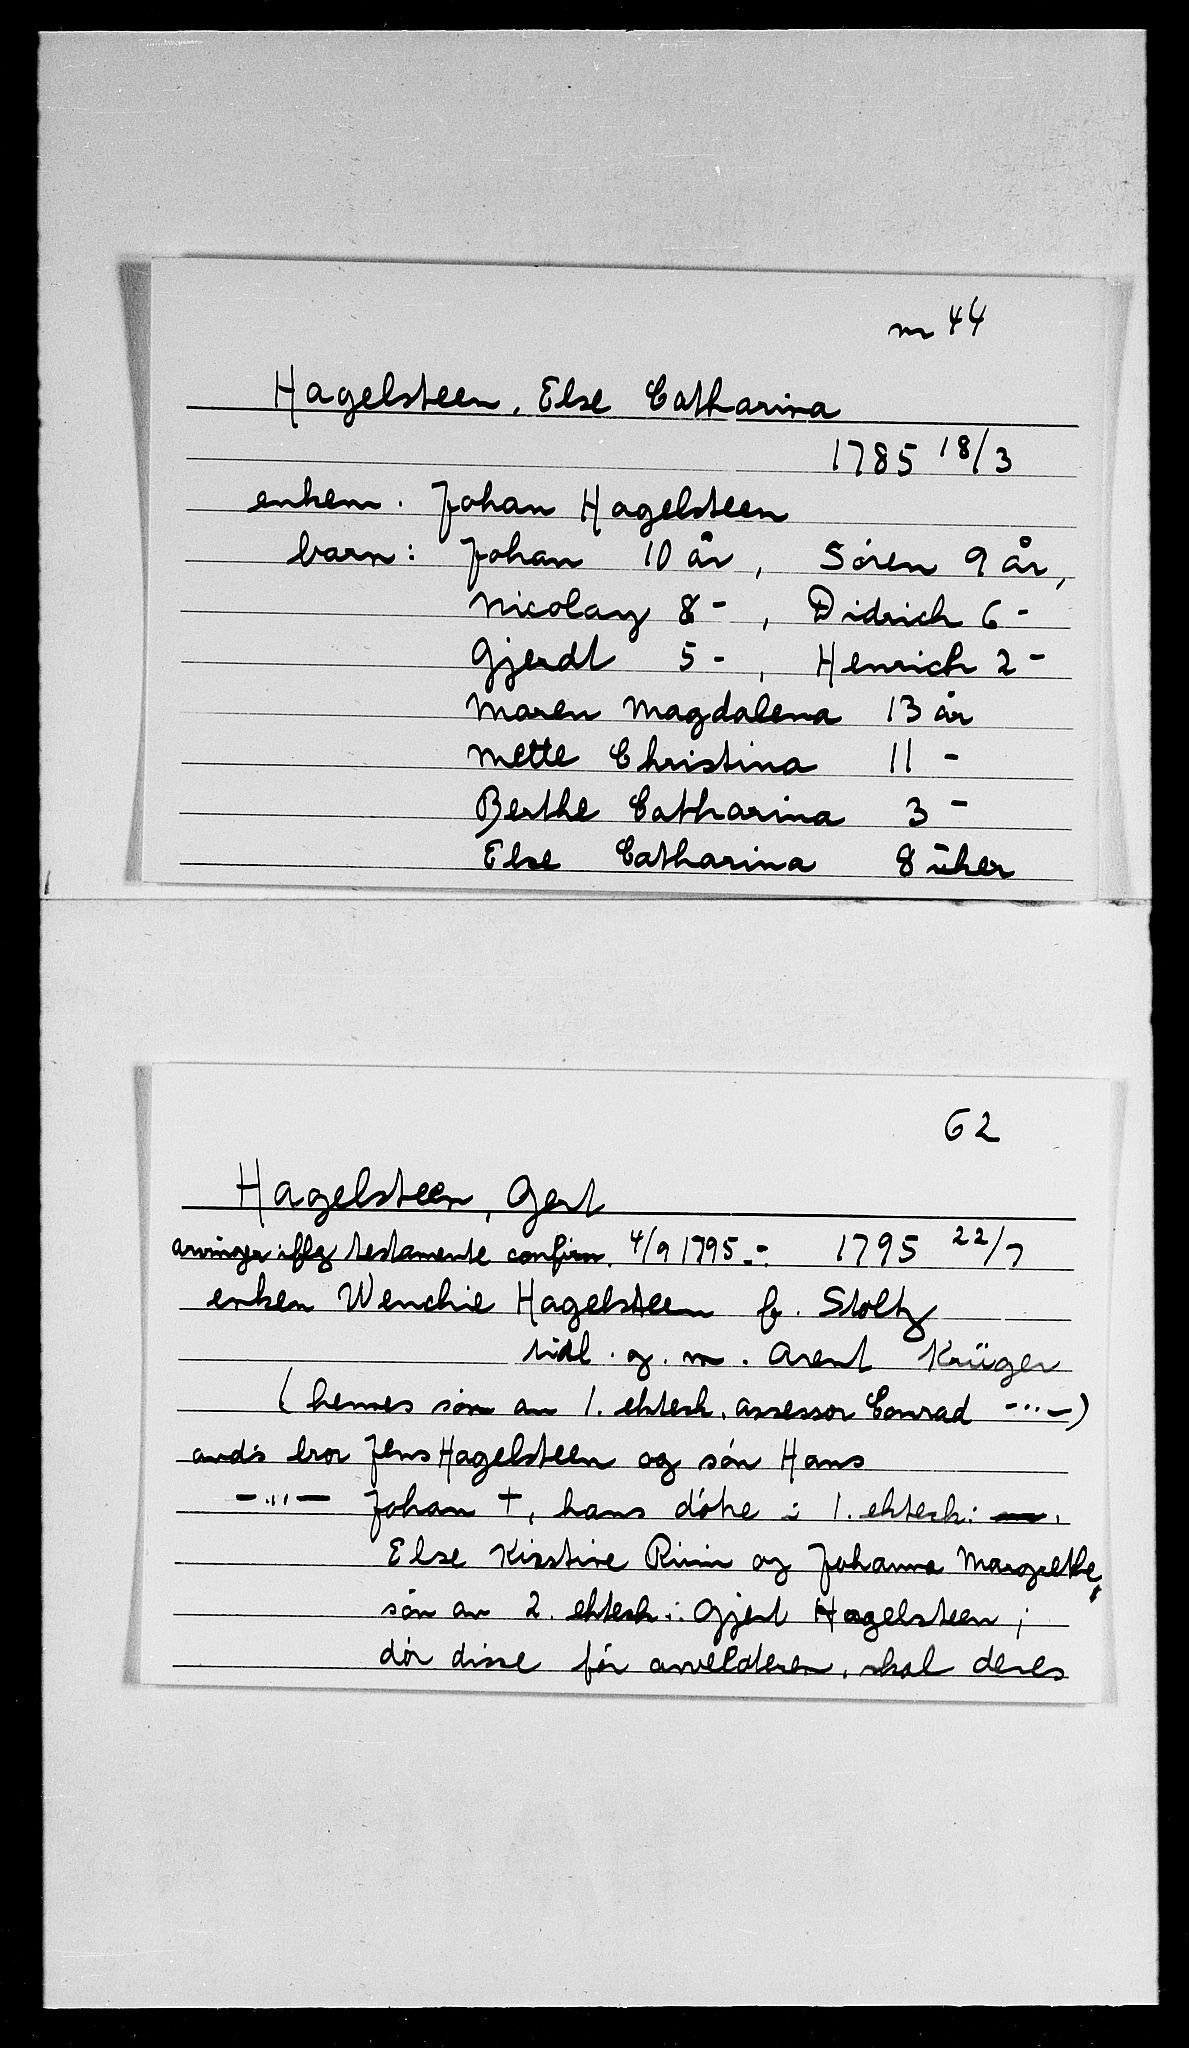 nr 44
Hagelsteen, Else Catharina
1785 18/3
enkem. Johan Hagelsteen
barn: Johan 10 år, Sören 9 år,
Nicolay 8 -, Didrich 6 -
Gjerdt 5 -, Henrich 2 -
Maren Magdalena 13 år
Mette Christina 11 -
Berthe Catharina 3 -
Else Catharina 8 uker
62
Hagelsteen, Gert
arvinger iflg testamente confirm. 4/9 1795 -: 1795 22/7
enken Wenchie Hagelsteen f. Stoltz
tidl. g. m. Arent Krüger
(hennes sön av 1. ektesk. assessor Conrad -"-)
avd's bror Jens Hagelsteen og sön Hans
-"- Johan †, hans döhe i 1. ektesk:
Else Kisstine og Johanna Margrethe,
sön av 2. ektesk: Gjert Hagelsteen;
dör disse för arveldteren, skal deres